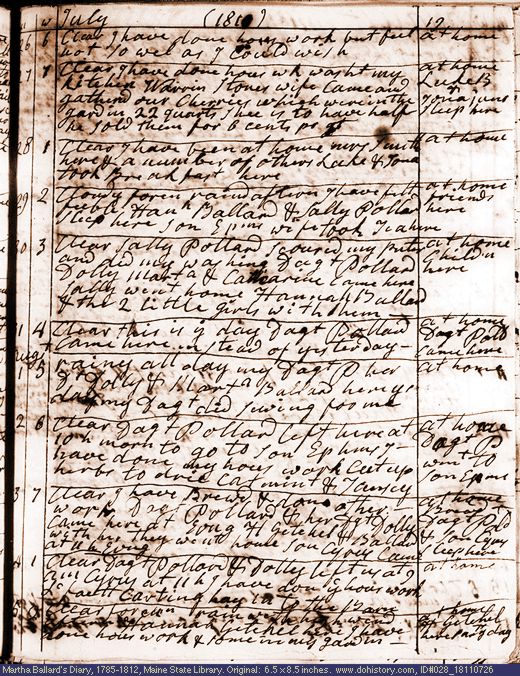 July (1811) 12
26 6 Clear I have done hous work but feel at home
not so well as I could wish
27 7 Clear I have done hous wk washt my at home
kitchen Warrin Stones wife Came and Luke B
gatherd our Cherries which were in the
gardin 22 quarts Shee is to have half Sleep here
She sold them for 6 cents pr qt
28 1 Clear I have been at home mrs Smith at home
here & a number of others Luke & Jona
took Breakfast here
29 2 Clouy foren raind aftern I have felt at home
feeble Han Ballard & Sally Pollard friends
Sleep here Son Epms wife took Tea here here
30 3 Clear Sally Pollard Scoured my at home
and did my washing Dagt Pollard Childn
Dolly Marta & Catharine Came here here
Sally went home Hannah Ballard
& the 2 Little girls with them
31 4 Clear this is ye day Dagt Pollard at home
Came here instead of yesterday Dagt Polld
Came here
Augt
1 5 raing all day my Dagt P her at home
Dt Dolly & Marta Ballard here ye
day my Dagt did Sewing for me
2 6 Clear Dagt Pollard left here at at home
10 h morn to go to Son Ephms I Dagt P
have done my hous work Cut up went to
herbs to drie Catmint & Tansey Son Epms
3 7 Clear I have Brewd & done other at home
work Dagt Pollard & her Dgt Dolly Dagt Polld
Came here at & Son Cyrus
with her they went home Son Cyrus Came Sleep here
at 11 h Evng
4 1 Clear Dagt Pollard & Dolly left us at 9 at home
Cyrus at 11 h I have done ye hous work
Carting hay in to the Barn
5 2 Clear foren rain at home
Hannah Getchel here I have Getchel
done hous work & some in my gardin here part day
Martha Ballard's Diary, 1785-1812, Maine State Library. Original: 6.5 x 8.5 inches. www.dohistory.com, ID#028_18110726